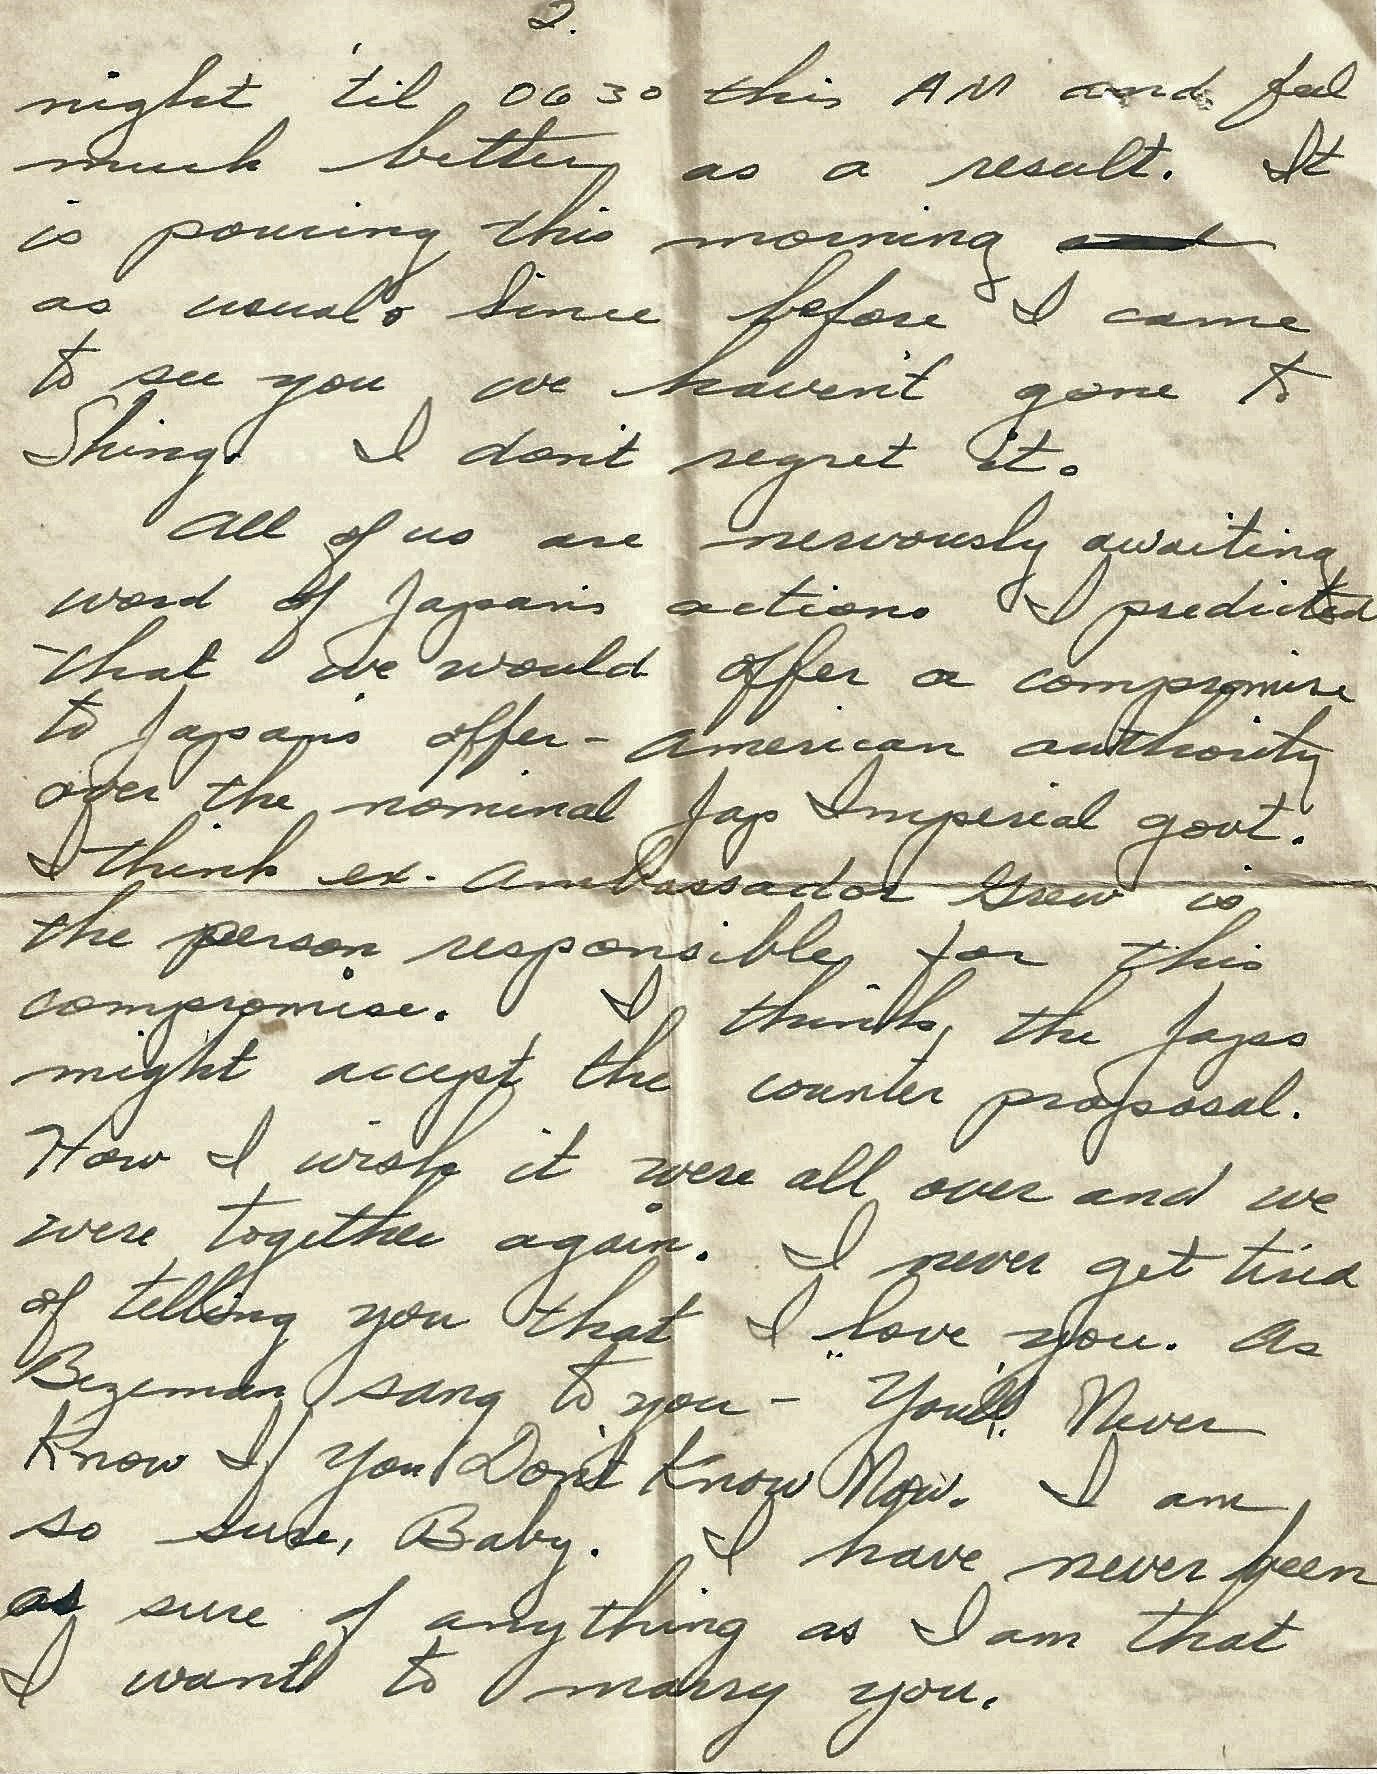 2.
night 'til 0630 this AM and feel
much better as a result. It
is pouring this morning
as usual. Since before I came
to see you we haven't gone to
Shing. I don't regret it.
All of us are nervously awaiting
word of Japan's actions I predicted
that we would offer a compromise
to Japan's offer - American authority
over the nominal Jap Imperial govt.
I think ex-Ambassador Grew is
the person responsible for this
compromise. I think the Japs
might accept the counter proposal.
How I wish it were all over and we
were together again. I never get tired
of telling you that I love you. As
Bezeman sang to you - "You'll" Never
Know If You Don't Know Now. I am
so sure, Baby. I have never been
as sure of anything as I am that
I want to marry you.